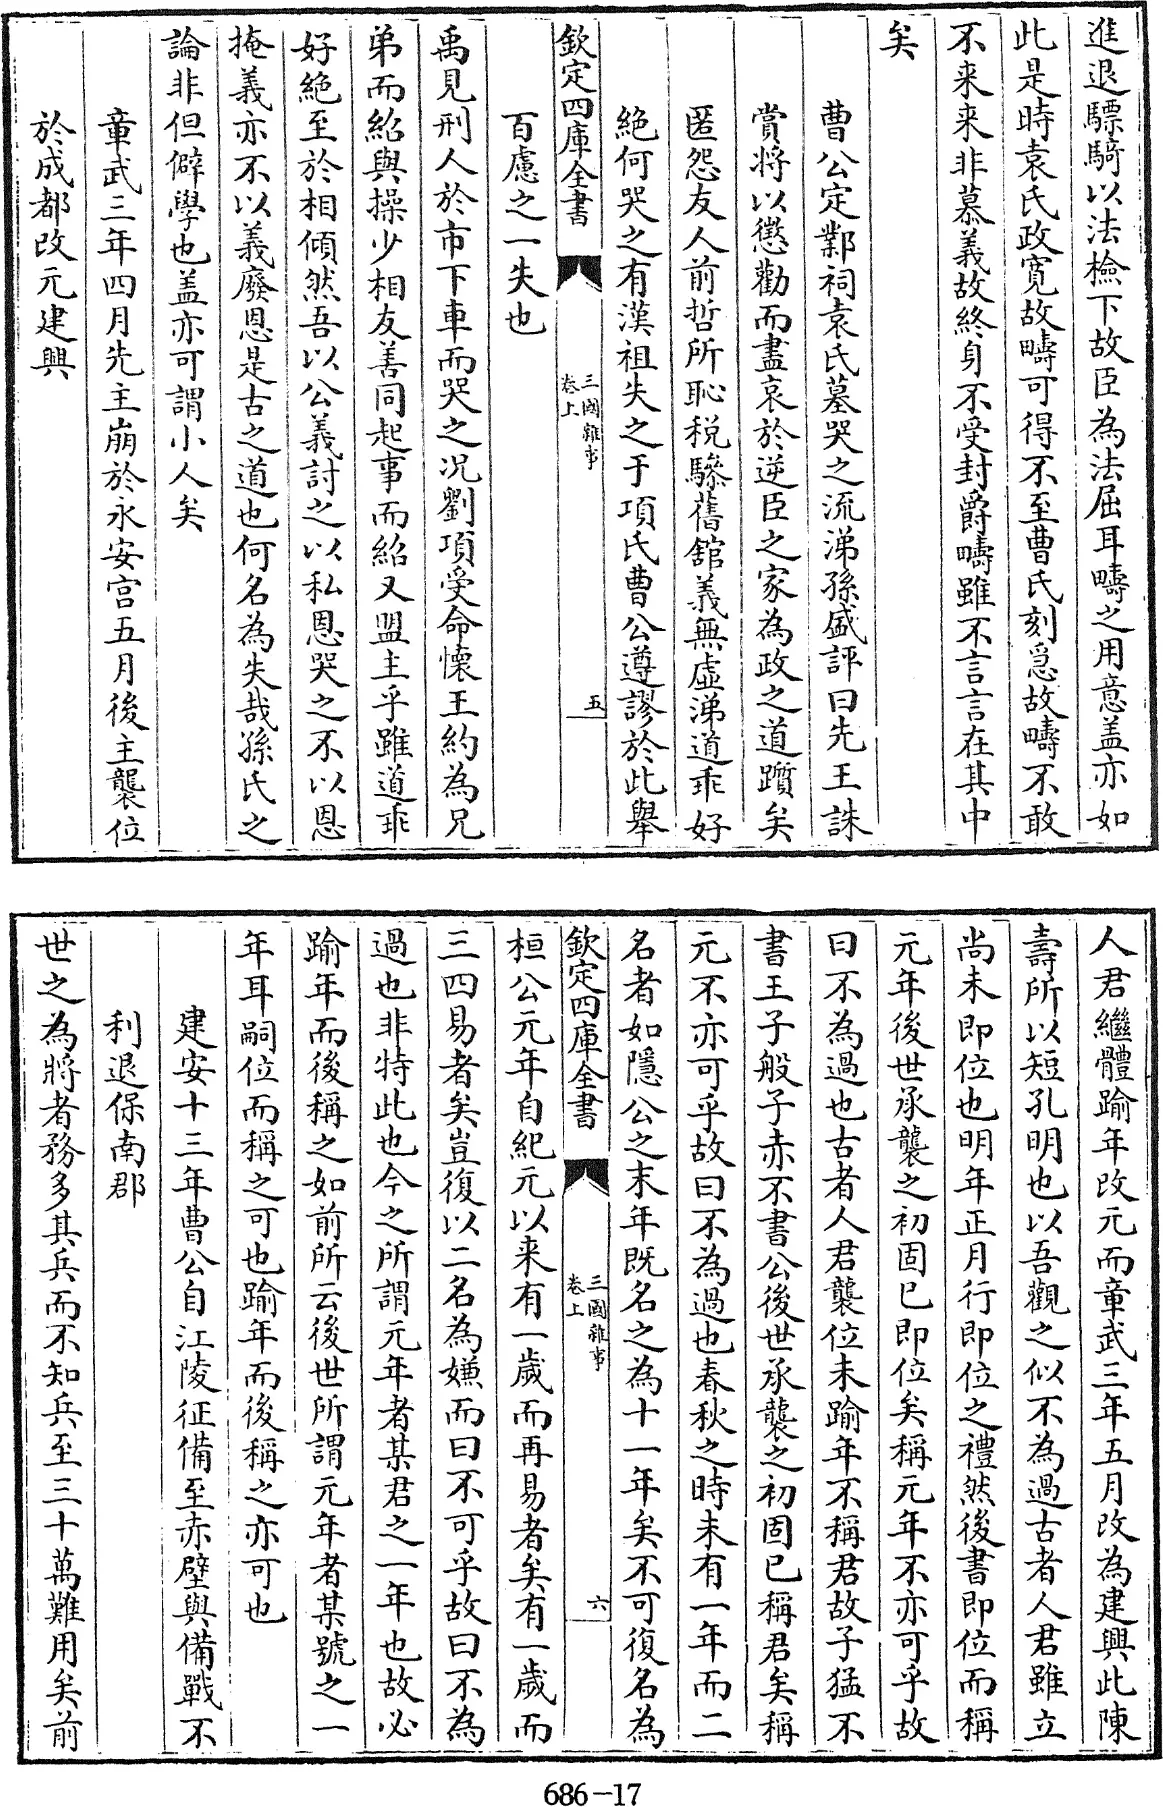 進退驃騎以法檢下故臣為法屈耳疇之用意盖亦如
此是時袁氏政寛故疇可得不至曹氏刻急故疇不敢
不来来非慕義故終身不受封爵疇雖不言言在其中
矣
曹公定鄴祠袁氏墓哭之流涕孫盛評曰先王誅
賞將以懲勸而盡哀於逆臣之家為政之道躓矣
匿怨友人前哲所恥税驂舊舘義無虛涕道乖好
絶何哭之有漢祖失之于項氏曹公遵謬於此舉
欽定四庫全書
三國雜事
卷上
五
百慮之一失也
禹見刑人於市下車而哭之况劉項受命懷王約為兄
弟而紹與操少相友善同起事而紹又盟主乎雖道乖
好絶至於相傾然吾以公義討之以私恩哭之不以恩
掩義亦不以義廢恩是古之道也何名為失哉孫氏之
論非但僻學也盖亦可謂小人矣
章武三年四月先主崩於永安宫五月後主襲位
於成都改元建興
人君繼體踰年改元而章武三年五月改為建興此陳
壽所以短孔明也以吾觀之似不為過古者人君雖立
尚未即位也明年正月行即位之禮然後書即位而稱
元年後世承襲之初固已即位矣稱元年不亦可乎故
曰不為過也古者人君襲位未踰年不稱君故子猛不
書王子般子赤不書公後世承襲之初固已稱君矣稱
元不亦可乎故曰不為過也春秋之時未有一年而二
名者如隱公之末年既名之為十一年矣不可復名為
欽定四庫全書
三國雜事
卷上
六
桓公元年自紀元以来有一歲而再易者矣有一歲而
三四易者矣豈復以二名為嫌而曰不可乎故曰不為
過也非特此也今之所謂元年者某君之一年也故必
踰年而後稱之如前所云後世所謂元年者某號之一
年耳嗣位而稱之可也踰年而後稱之亦可也
建安十三年曹公自江陵征備至赤壁與備戰不
利退保南郡
世之為將者務多其兵而不知兵至三十萬難用矣前
686-17